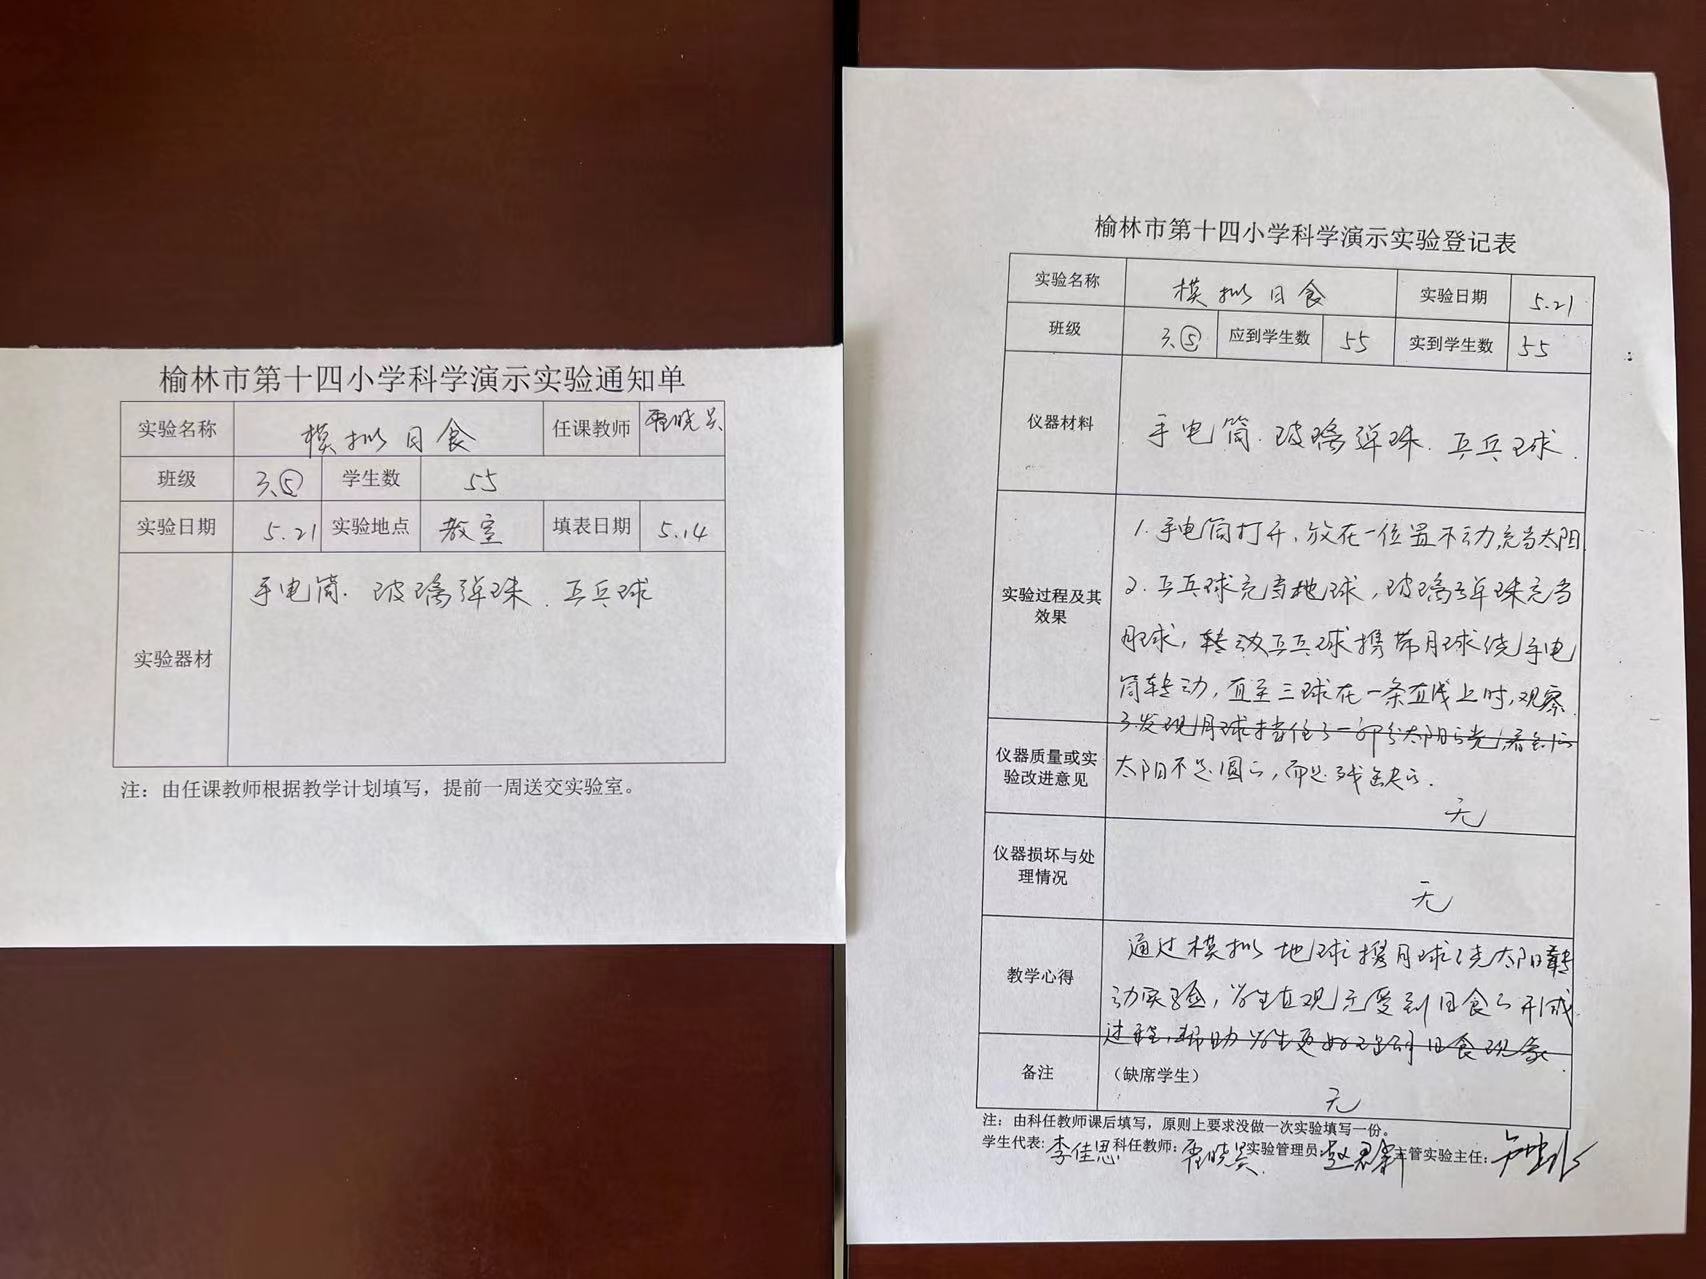 榆林市第十四小学科学演示实验通知单
实验名称 模拟日食 任课教师
班级 3.⑤ 学生数 55
实验日期 5.21 实验地点 教室 填表日期 5.14
实验器材 手电筒.玻璃弹珠.乒乓球
注：由任课教师根据教学计划填写，提前一周送交实验室。
榆林市第十四小学科学演示实验登记表
实验名称 模拟日食 实验日期 5.21
班级 3.⑤ 应到学生数 55 实到学生数 55
仪器材料 手电筒.玻璃弹珠.乒乓球.
实验过程及其效果
1.手电筒打开,放在一位置不动,充当太阳
2.乒乓球充当地球,玻璃弹珠充当
月球,转动乒乓球携带月球绕手电
筒转动,直至三球在一条直线上时,观察.
3.发现月球挡住了一部分太阳的光,看到的
太阳不是圆的,而是残缺的.
仪器质量或实验改进意见
无
仪器损坏与处理情况
无
教学心得
通过模拟地球携月球绕太阳转
动实验,学生直观感受到日食的形成
过程,帮助学生更好理解日食现象.
备注 （缺席学生）
无
注：由科任教师课后填写，原则上要求没做一次实验填写一份。
学生代表:李佳思 科任教师: 实验管理员: 主管实验主任: